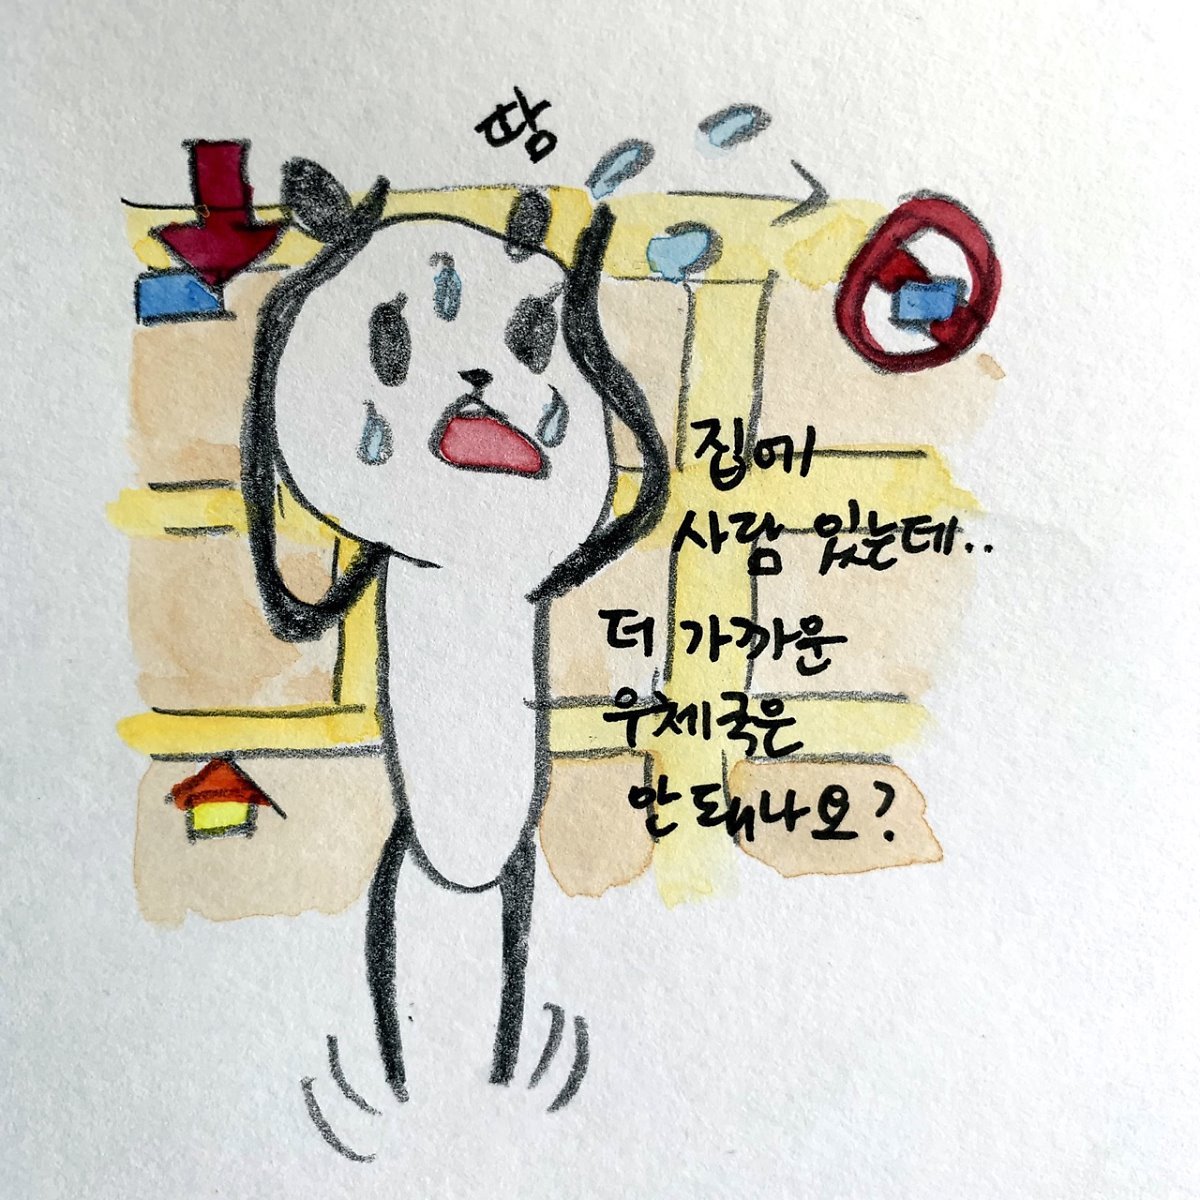 땀
집에
사람 있는데..
더 가까운
우체국은
안 돼나요?